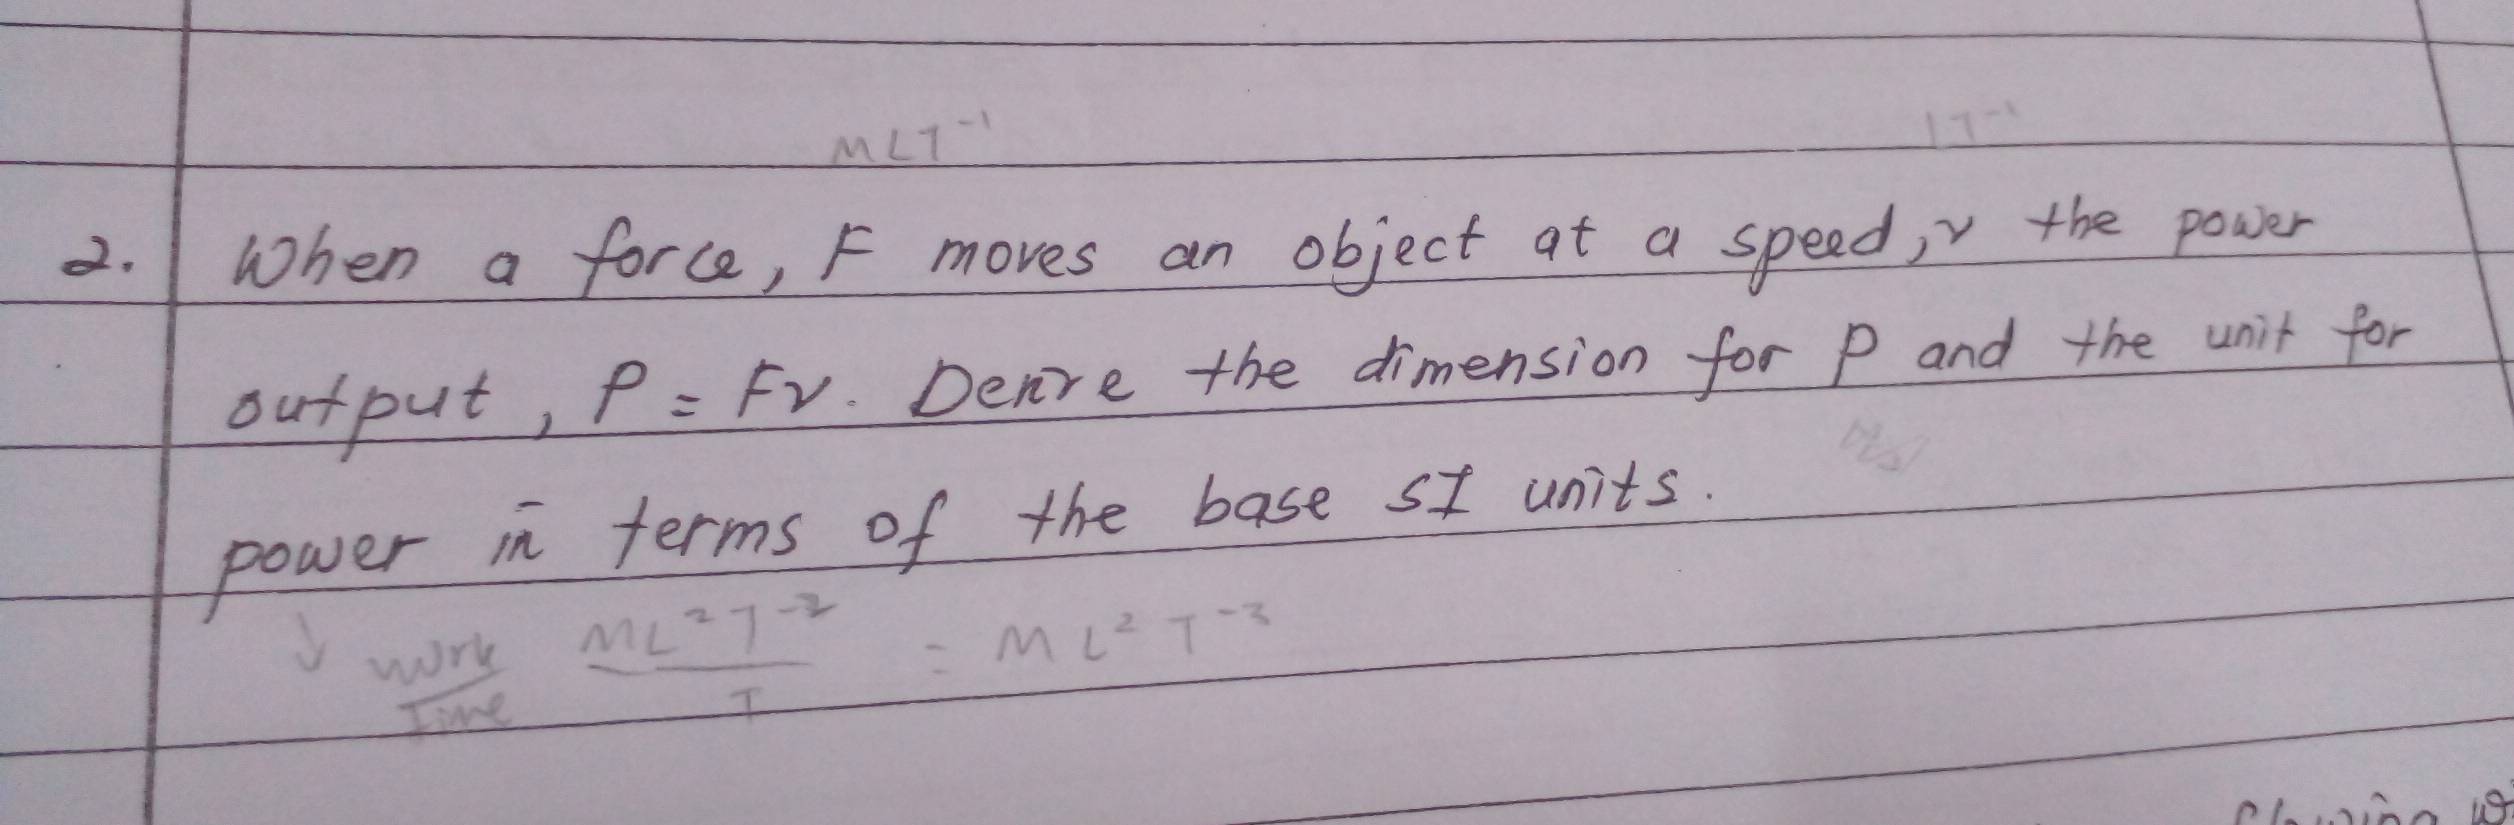 MLT⁻¹ LT⁻¹
2. When a force, F moves an object at a speed, v the power
output, P = Fv. Derive the dimension for P and the unit for
power in terms of the base SI units.
↓ Work/Time ML²T⁻²/T = ML²T⁻³